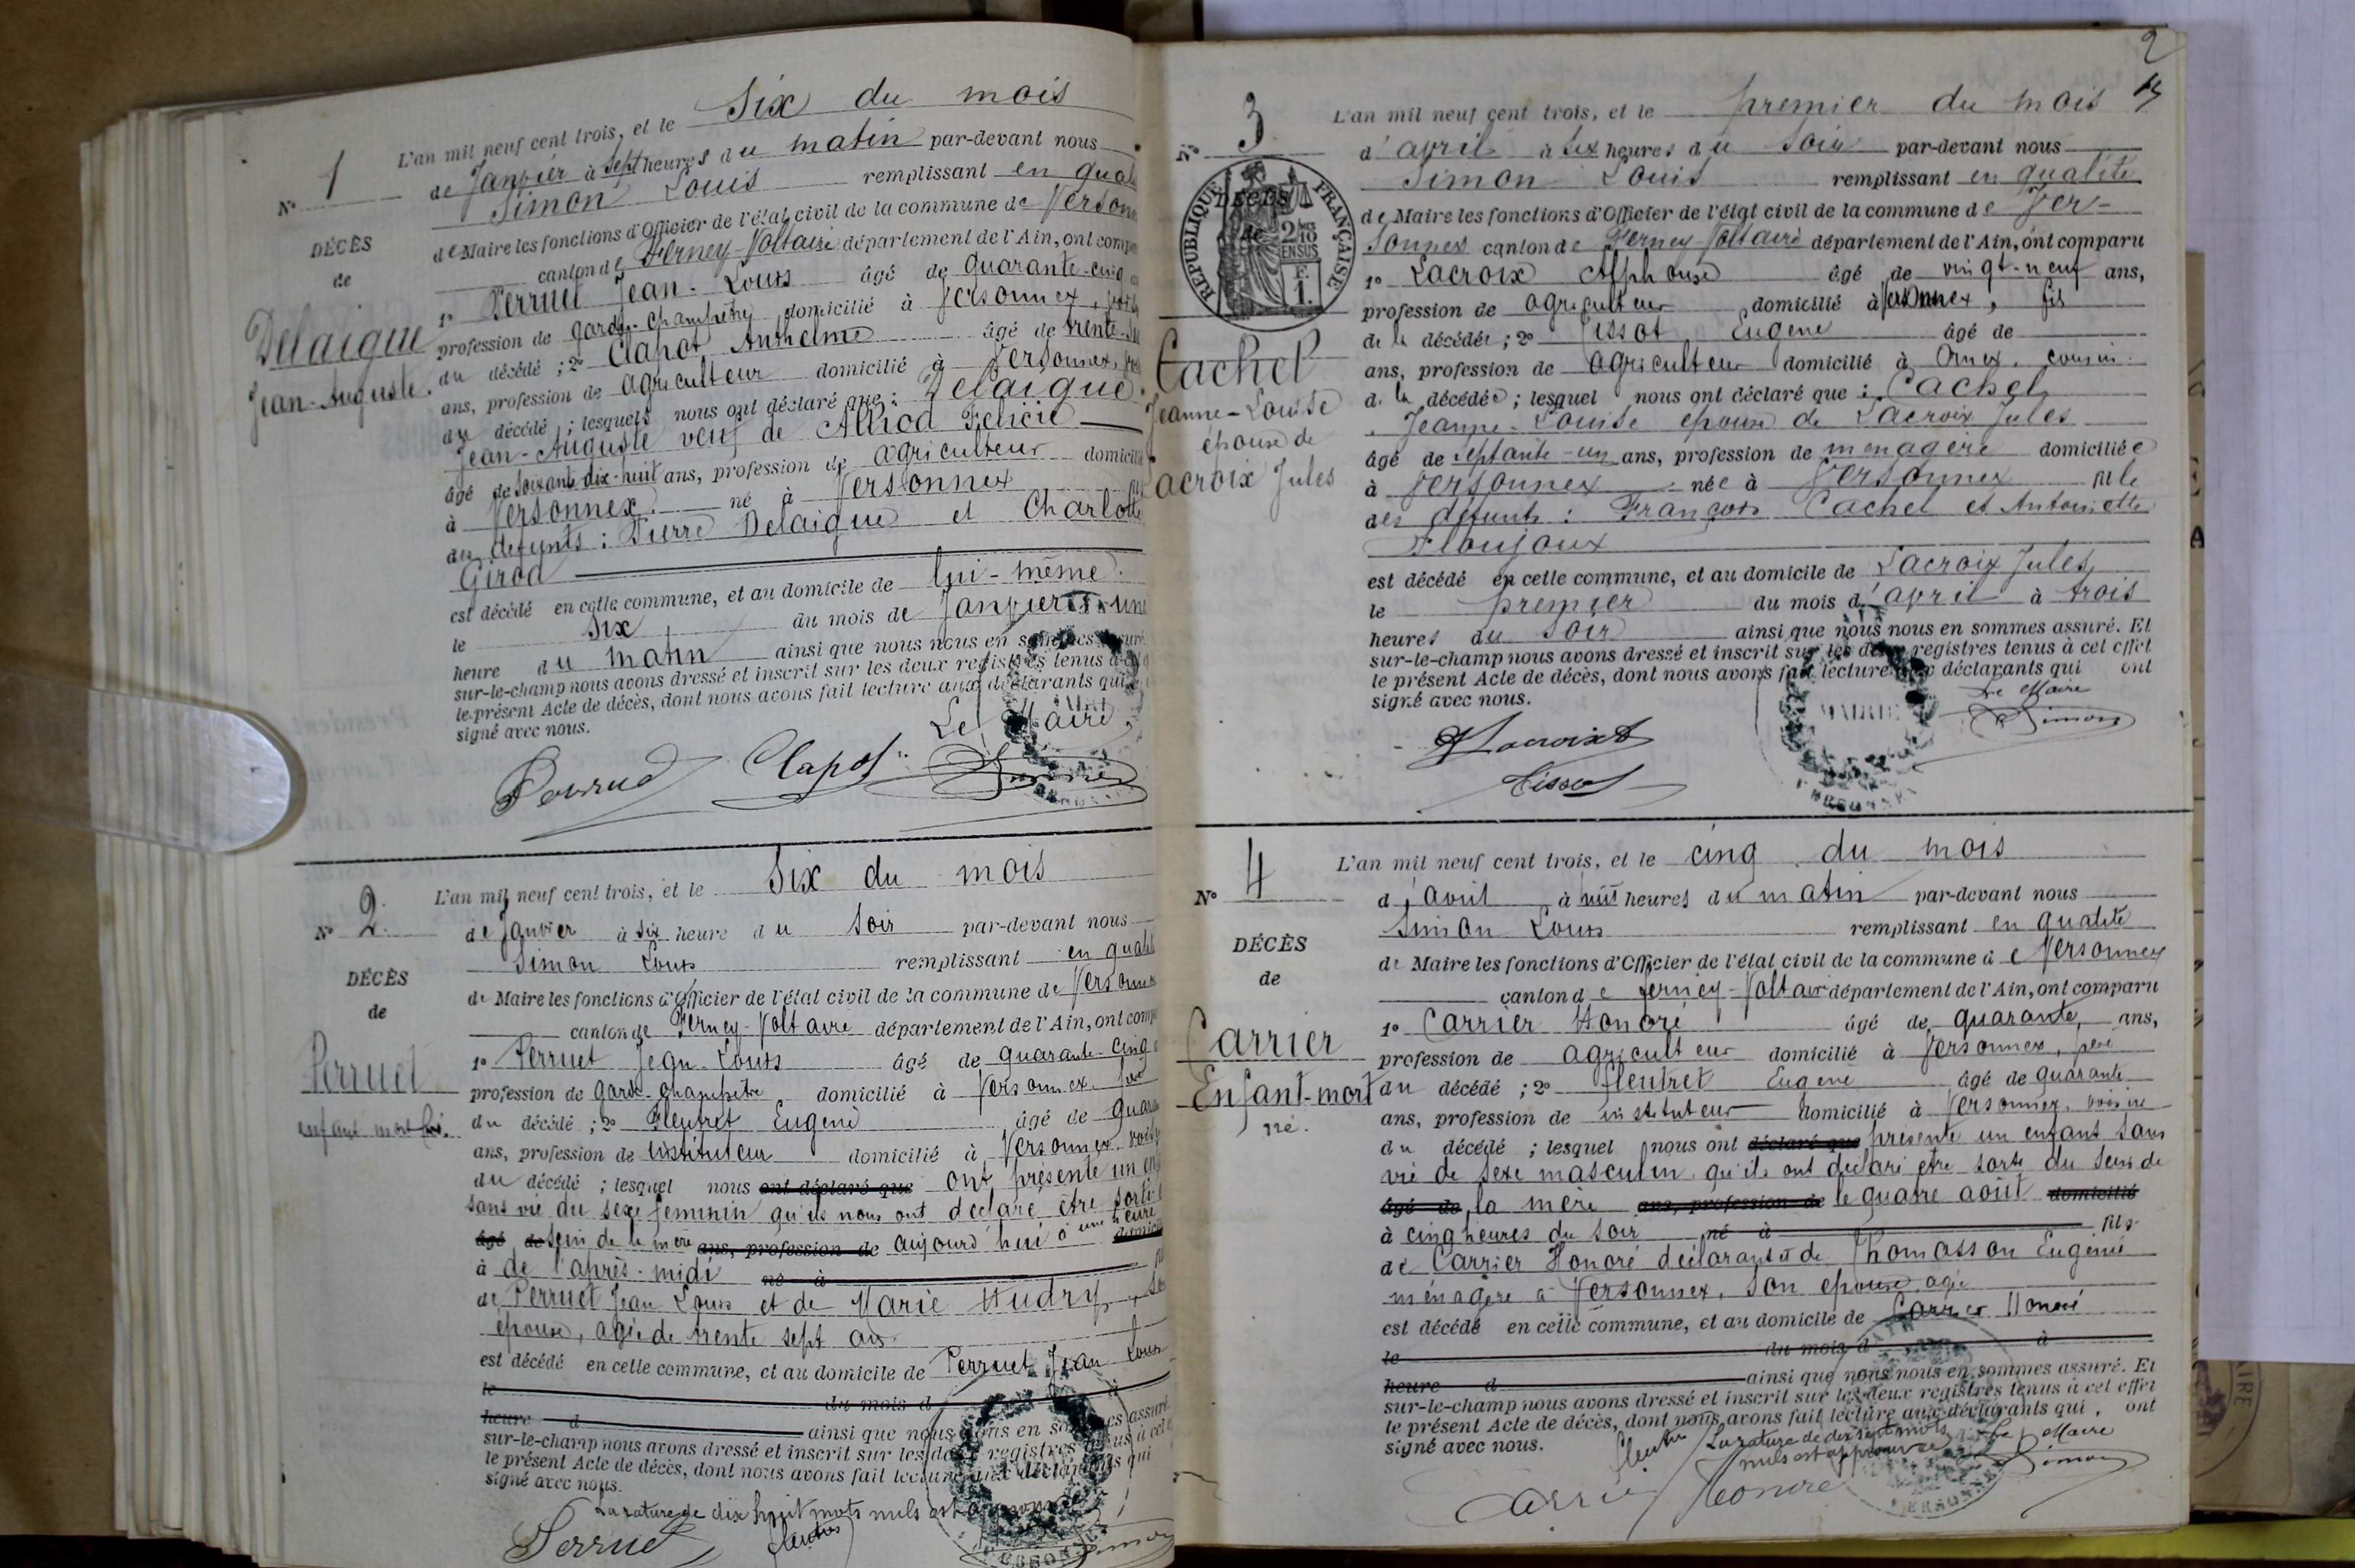 N° 1
DÉCÈS
de
Delaigue
Jean-Auguste.
L'an mil neuf cent trois, et le Six du mois
de Janvier à Sept heures du matin par-devant nous
Simon Louis remplissant en qual
de Maire les fonctions d'Officier de l'état civil de la commune de Verson
canton de Ferney-Voltaire département de l'Ain, ont comp
1° Perruet Jean-Louis âgé de quarante-cinq
profession de garde-champêtre domicilié à Versonnex,
du décédé ; 2° Clapot Anthelme âgé de trente
ans, profession de agriculteur domicilié à Versonnex,
du décédé ; lesquels nous ont déclaré que : Delaigue
Jean-Auguste veuf de Félicie
âgé de soixante dix-huit ans, profession de agriculteur domicilié
à Versonnex né à Versonnex fil
des défunts : Pierre Delaigue et Charlotte
Girod
est décédé en cette commune, et au domicile de lui-même.
le Six du mois de Janvier à une
heure du matin ainsi que nous nous en sommes assuré
sur-le-champ nous avons dressé et inscrit sur les deux registres tenus à cet
le présent Acte de décès, dont nous avons fait lecture aux déclarants qui
signé avec nous.
Le Maire,
Perruet Clapot Simon
N° 2
DÉCÈS
de
Perruet
enfant mort-né.
L'an mil neuf cent trois, et le Six du mois
de Janvier à six heure du Soir par-devant nous
Simon Louis remplissant en qual
de Maire les fonctions d'Officier de l'état civil de la commune de Versonne
canton de Ferney-Voltaire département de l'Ain, ont comp
1° Perruet Jean-Louis âgé de quarante-cinq
profession de garde-champêtre domicilié à Versonnex père
du décédé ; 2° Fleutret Eugène âgé de quara
ans, profession de instituteur domicilié à Versonnex voisin
du décédé ; lesquel nous ont déclaré que ont présenté un enf
sans vie du sexe féminin qu'ils nous ont déclaré être sorti
âgé de sein de la mère ans, profession de aujourd'hui à une heure domicilié
à de l'après-midi né à
de Perruet Jean Louis et de Marie Hudry, Son
épouse, âgée de trente sept ans.
est décédé en cette commune, et au domicile de Perruet Jean Louis
le du mois d à
heure d ainsi que nous nous en sommes assuré
sur-le-champ nous avons dressé et inscrit sur les deux registres tenus à cet e
le présent Acte de décès, dont nous avons fait lecture aux déclarants qui
signé avec nous.
La rature de dix huit mots nuls est approuvée
Perruet Fleutret Simon
2
N° 3
RÉPUBLIQUE FRANÇAISE
DÉCÈS
de
2/10 EN SUS
F. 1.
Cachet
Jeanne-Louise
épouse de
Lacroix Jules
L'an mil neuf cent trois, et le premier du mois
d'avril à six heures du Soir par-devant nous
Simon Louis remplissant en qualité
de Maire les fonctions d'Officier de l'état civil de la commune de Ver-
sonnex canton de Ferney-Voltaire département de l'Ain, ont comparu
1° Lacroix Alphonse âgé de vingt-neuf ans,
profession de agriculteur domicilié à Versonnex, fils
de la décédée ; 2° Tissot Eugène âgé de
ans, profession de agriculteur domicilié à Ornex, cousin
de la décédée ; lesquel nous ont déclaré que : Cachet
Jeanne-Louise épouse de Lacroix Jules
âgé de septante-un ans, profession de ménagère domiciliée
à Versonnex née à Versonnex fille
des défunts : François Cachet et Antoinette
Floujoux
est décédé en cette commune, et au domicile de Lacroix Jules,
le premier du mois d'avril à trois
heures du Soir ainsi que nous nous en sommes assuré. Et
sur-le-champ nous avons dressé et inscrit sur les deux registres tenus à cet effet
le présent Acte de décès, dont nous avons fait lecture aux déclarants qui ont
signé avec nous.
Le Maire
Lacroix Simon
MAIRIE
Tissot
N° 4
DÉCÈS
de
Carrier
Enfant-mort
né.
L'an mil neuf cent trois, et le cinq du mois
d'août à huit heures du matin par-devant nous
Simon Louis remplissant en qualité
de Maire les fonctions d'Officier de l'état civil de la commune de Versonnex
canton de Ferney-Voltaire département de l'Ain, ont comparu
1° Carrier Honoré âgé de quarante ans,
profession de agriculteur domicilié à Versonnex, père
du décédé ; 2° Fleutret Eugène âgé de quarante
ans, profession de instituteur domicilié à Versonnex, voisin
du décédé ; lesquel nous ont déclaré que présenté un enfant sans
vie de sexe masculin qu'ils ont déclaré être sorti du sein de
âgé de la mère ans, profession de le quatre août domicilié
à cinq heures du soir né à fils
de Carrier Honoré déclarant et de Thomasson Eugénie
ménagère à Versonnex, son épouse, âgée
est décédé en cette commune, et au domicile de Carrier Honoré
le du mois d à
heure d ainsi que nous nous en sommes assuré. Et
sur-le-champ nous avons dressé et inscrit sur les deux registres tenus à cet effet
le présent Acte de décès, dont nous avons fait lecture aux déclarants qui ont
signé avec nous.
La rature de dix sept mots
nuls est approuvée
Le Maire
Fleutret Simon
Carrier Honoré